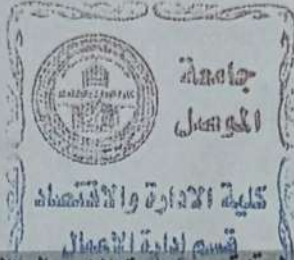 جامعة
الموصل
كلية الادارة والاقتصاد
قسم إدارة الأعمال